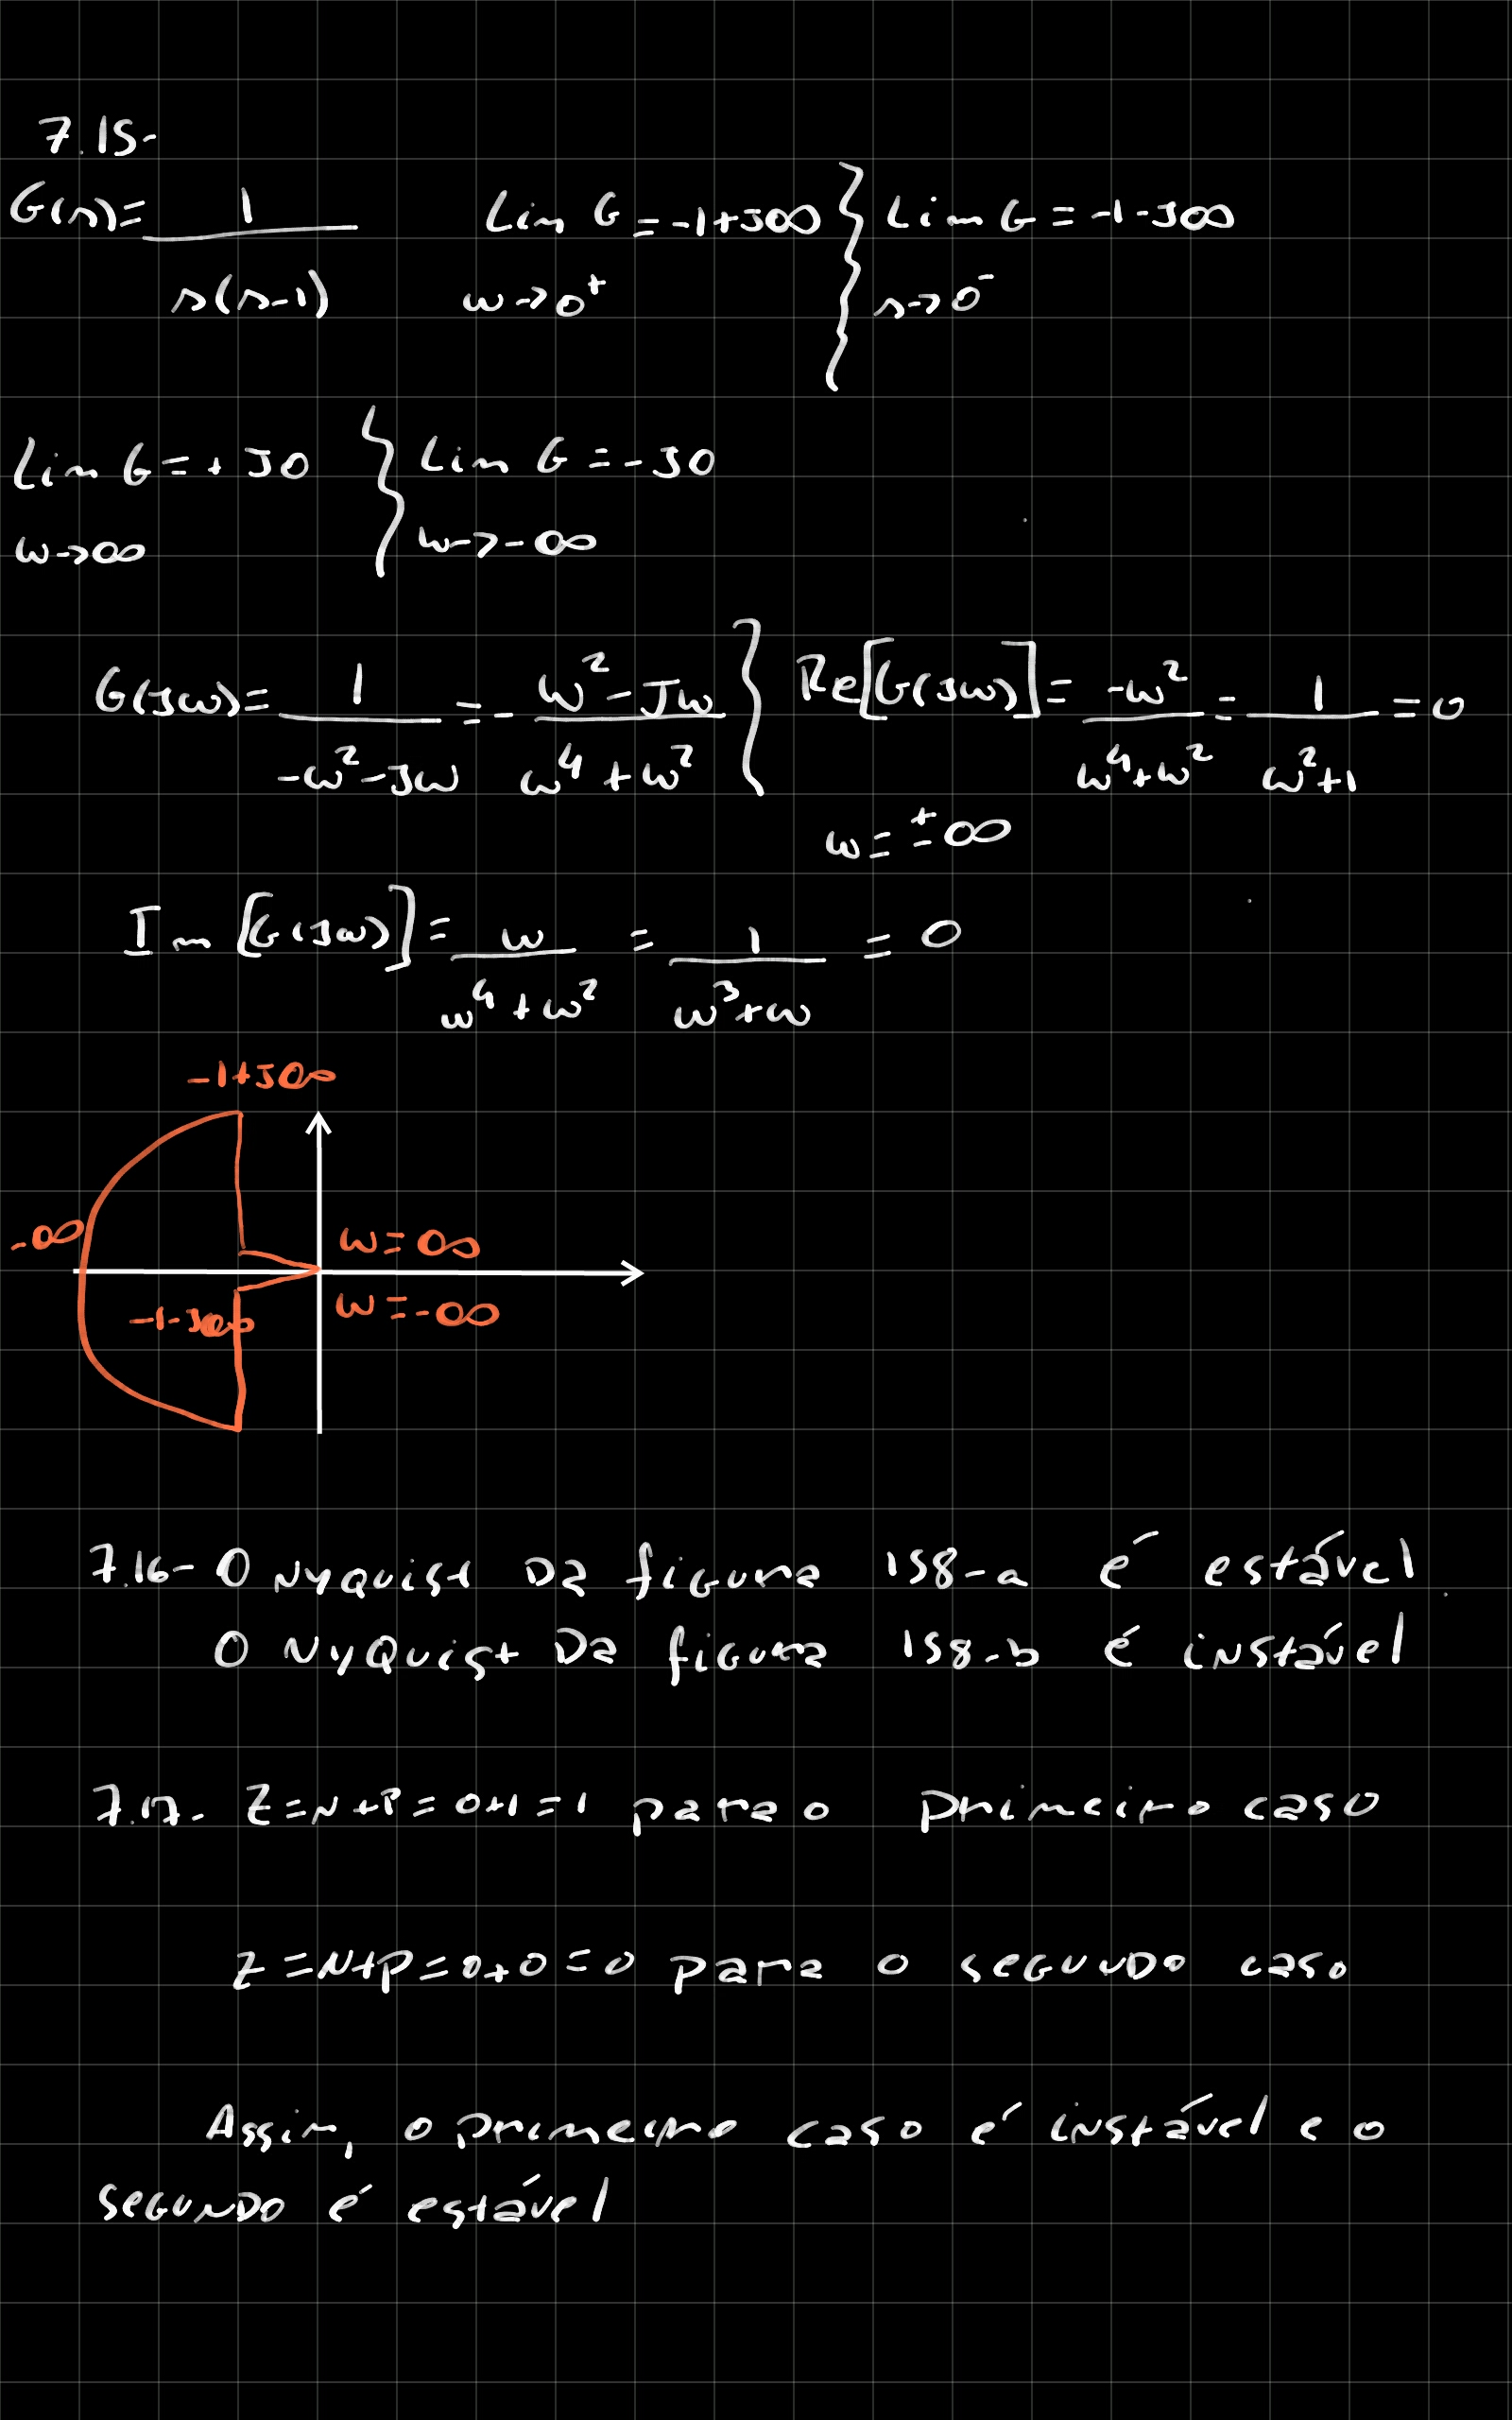 7.15-
G(s)= 1 / s(s-1)   Lim G = -1+J∞ } Lim G = -1-J∞
w->0⁺   s->0⁻
Lim G = +J0 } Lim G = -J0
w->∞   w->-∞
G(Jw)= 1 / -w²-Jw = - w²-Jw / w⁴+w² } Re[G(Jw)]= -w² / w⁴+w² = 1 / w²+1 = 0
w = ±∞
Im [G(Jw)] = w / w⁴+w² = 1 / w³+w = 0
-1+J∞
-∞
w=∞
w=-∞
-1-J∞
7.16- O Nyquist Da figura 158-a é estável
O NyQuist Da figura 158-b é instável
7.17- Z=N+P=0+1=1 para o primeiro caso
Z=N+P=0+0=0 para o segundo caso
Assim, o primeiro caso é instável e o
segundo é estável